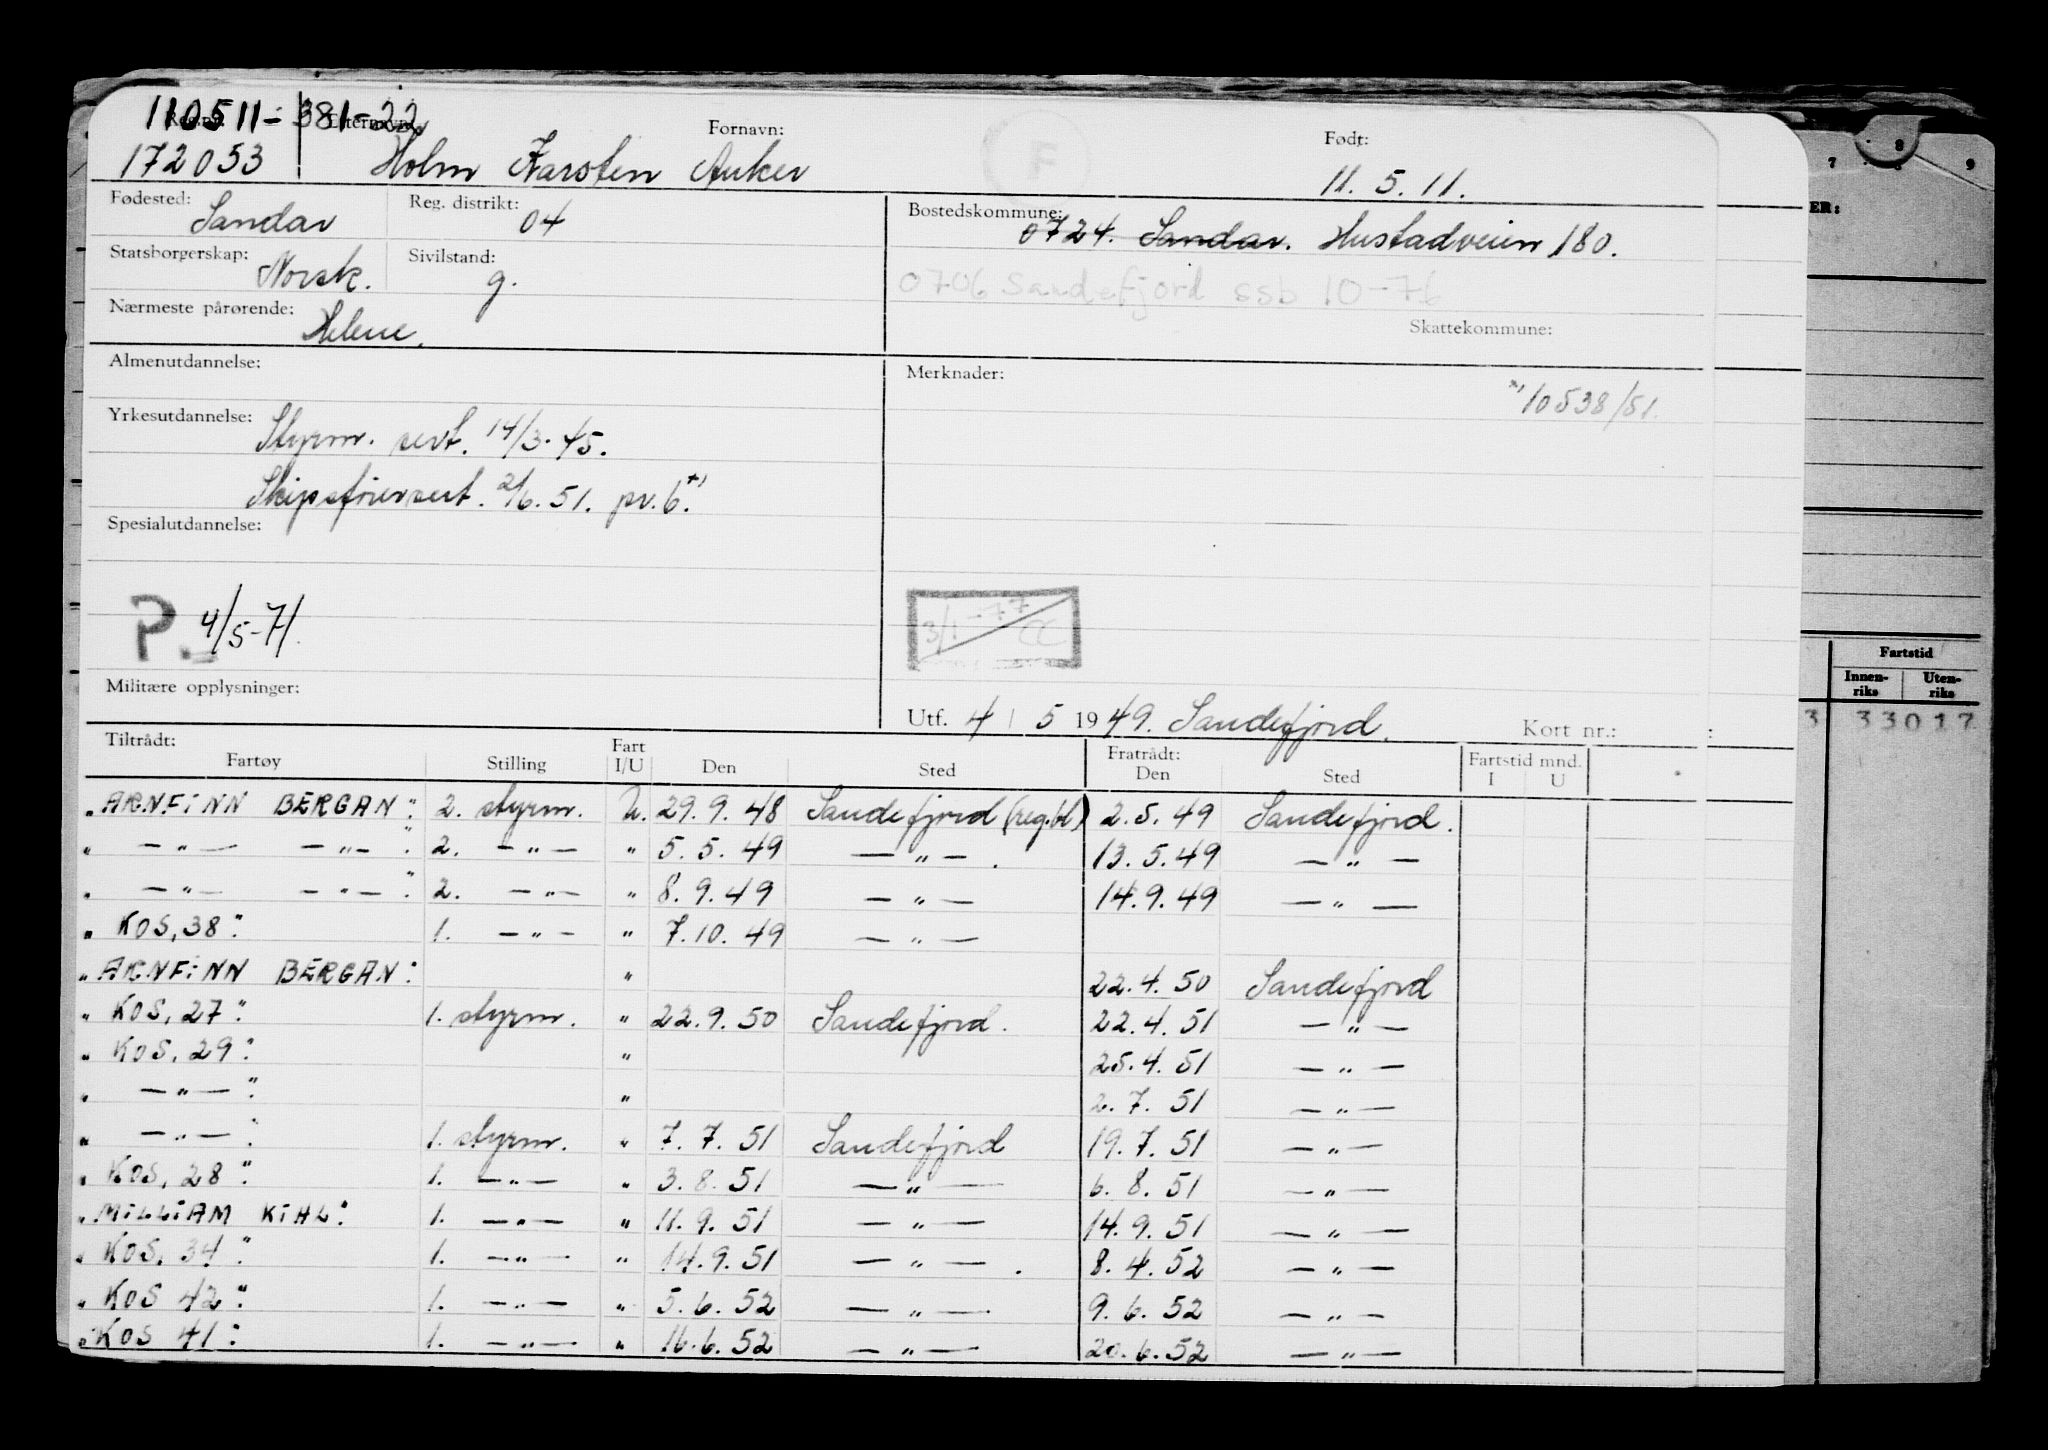 110511-381-22
Reg.nr. Etternavn: Fornavn: Født:
172053 Holm Karsten Anker 11. 5. 11.
Fødested: Sandar Reg. distrikt: 04 Bostedskommune: 0724. Sandar. Hustadveien 180.
Statsborgerskap: Norsk. Sivilstand: g.
0706 Sandefjord SSb 10-76
Nærmeste pårørende: Helene. Skattekommune:
Almenutdannelse: Merknader:
10538/51.
Yrkesutdannelse: Styrm. sert. 14/3-45.
Skipsførersert. 2/6.51. pr.6.
Spesialutdannelse:
P. 4/5-71. 3/1-77 CC
Militære opplysninger:
Utf. 4/5 1949. Sandefjord. Kort nr.: :
Tiltrådt: Fratrådt:
Fartøy Stilling Fart I/U Den Sted Den Sted Fartstid mnd. I U
"ARNFINN BERGAN" 2. styrm. U. 29.9.48 Sandefjord (reg.bl) 2.5.49 Sandefjord.
" — " — — " — " 2. — " — " 5.5.49 — " — . 13.5.49 — " —
" — " — — " — " 2. — " — " 8.9.49 — " — 14.9.49 — " —
" KOS, 38" 1. — " — " 7.10.49 — " —
"ARNFINN BERGAN" " 22.4.50 Sandefjord
" KOS, 27" 1. styrm. " 22.9.50 Sandefjord. 22.4.51 — " —
" KOS, 29" " 25.4.51 — " —
" — " — " " 2.7.51 — " —
" — " — " 1. styrm. " 7.7.51 Sandefjord 19.7.51 — " —
" KOS, 28" 1. — " — " 3.8.51 — " — 6.8.51 — " —
"WILLIAM KIHL" 1. — " — " 11.9.51 — " — 14.9.51 — " —
" KOS, 34" 1. — " — " 14.9.51 — " — . 8.4.52 — " —
" KOS 42" 1. — " — " 5.6.52 — " — 9.6.52 — " —
"KOS 41" 1. — " — " 16.6.52 — " — 20.6.52 — " —
7 8 9
ER:
Fartstid
Innenriks Utenriks
3 33017